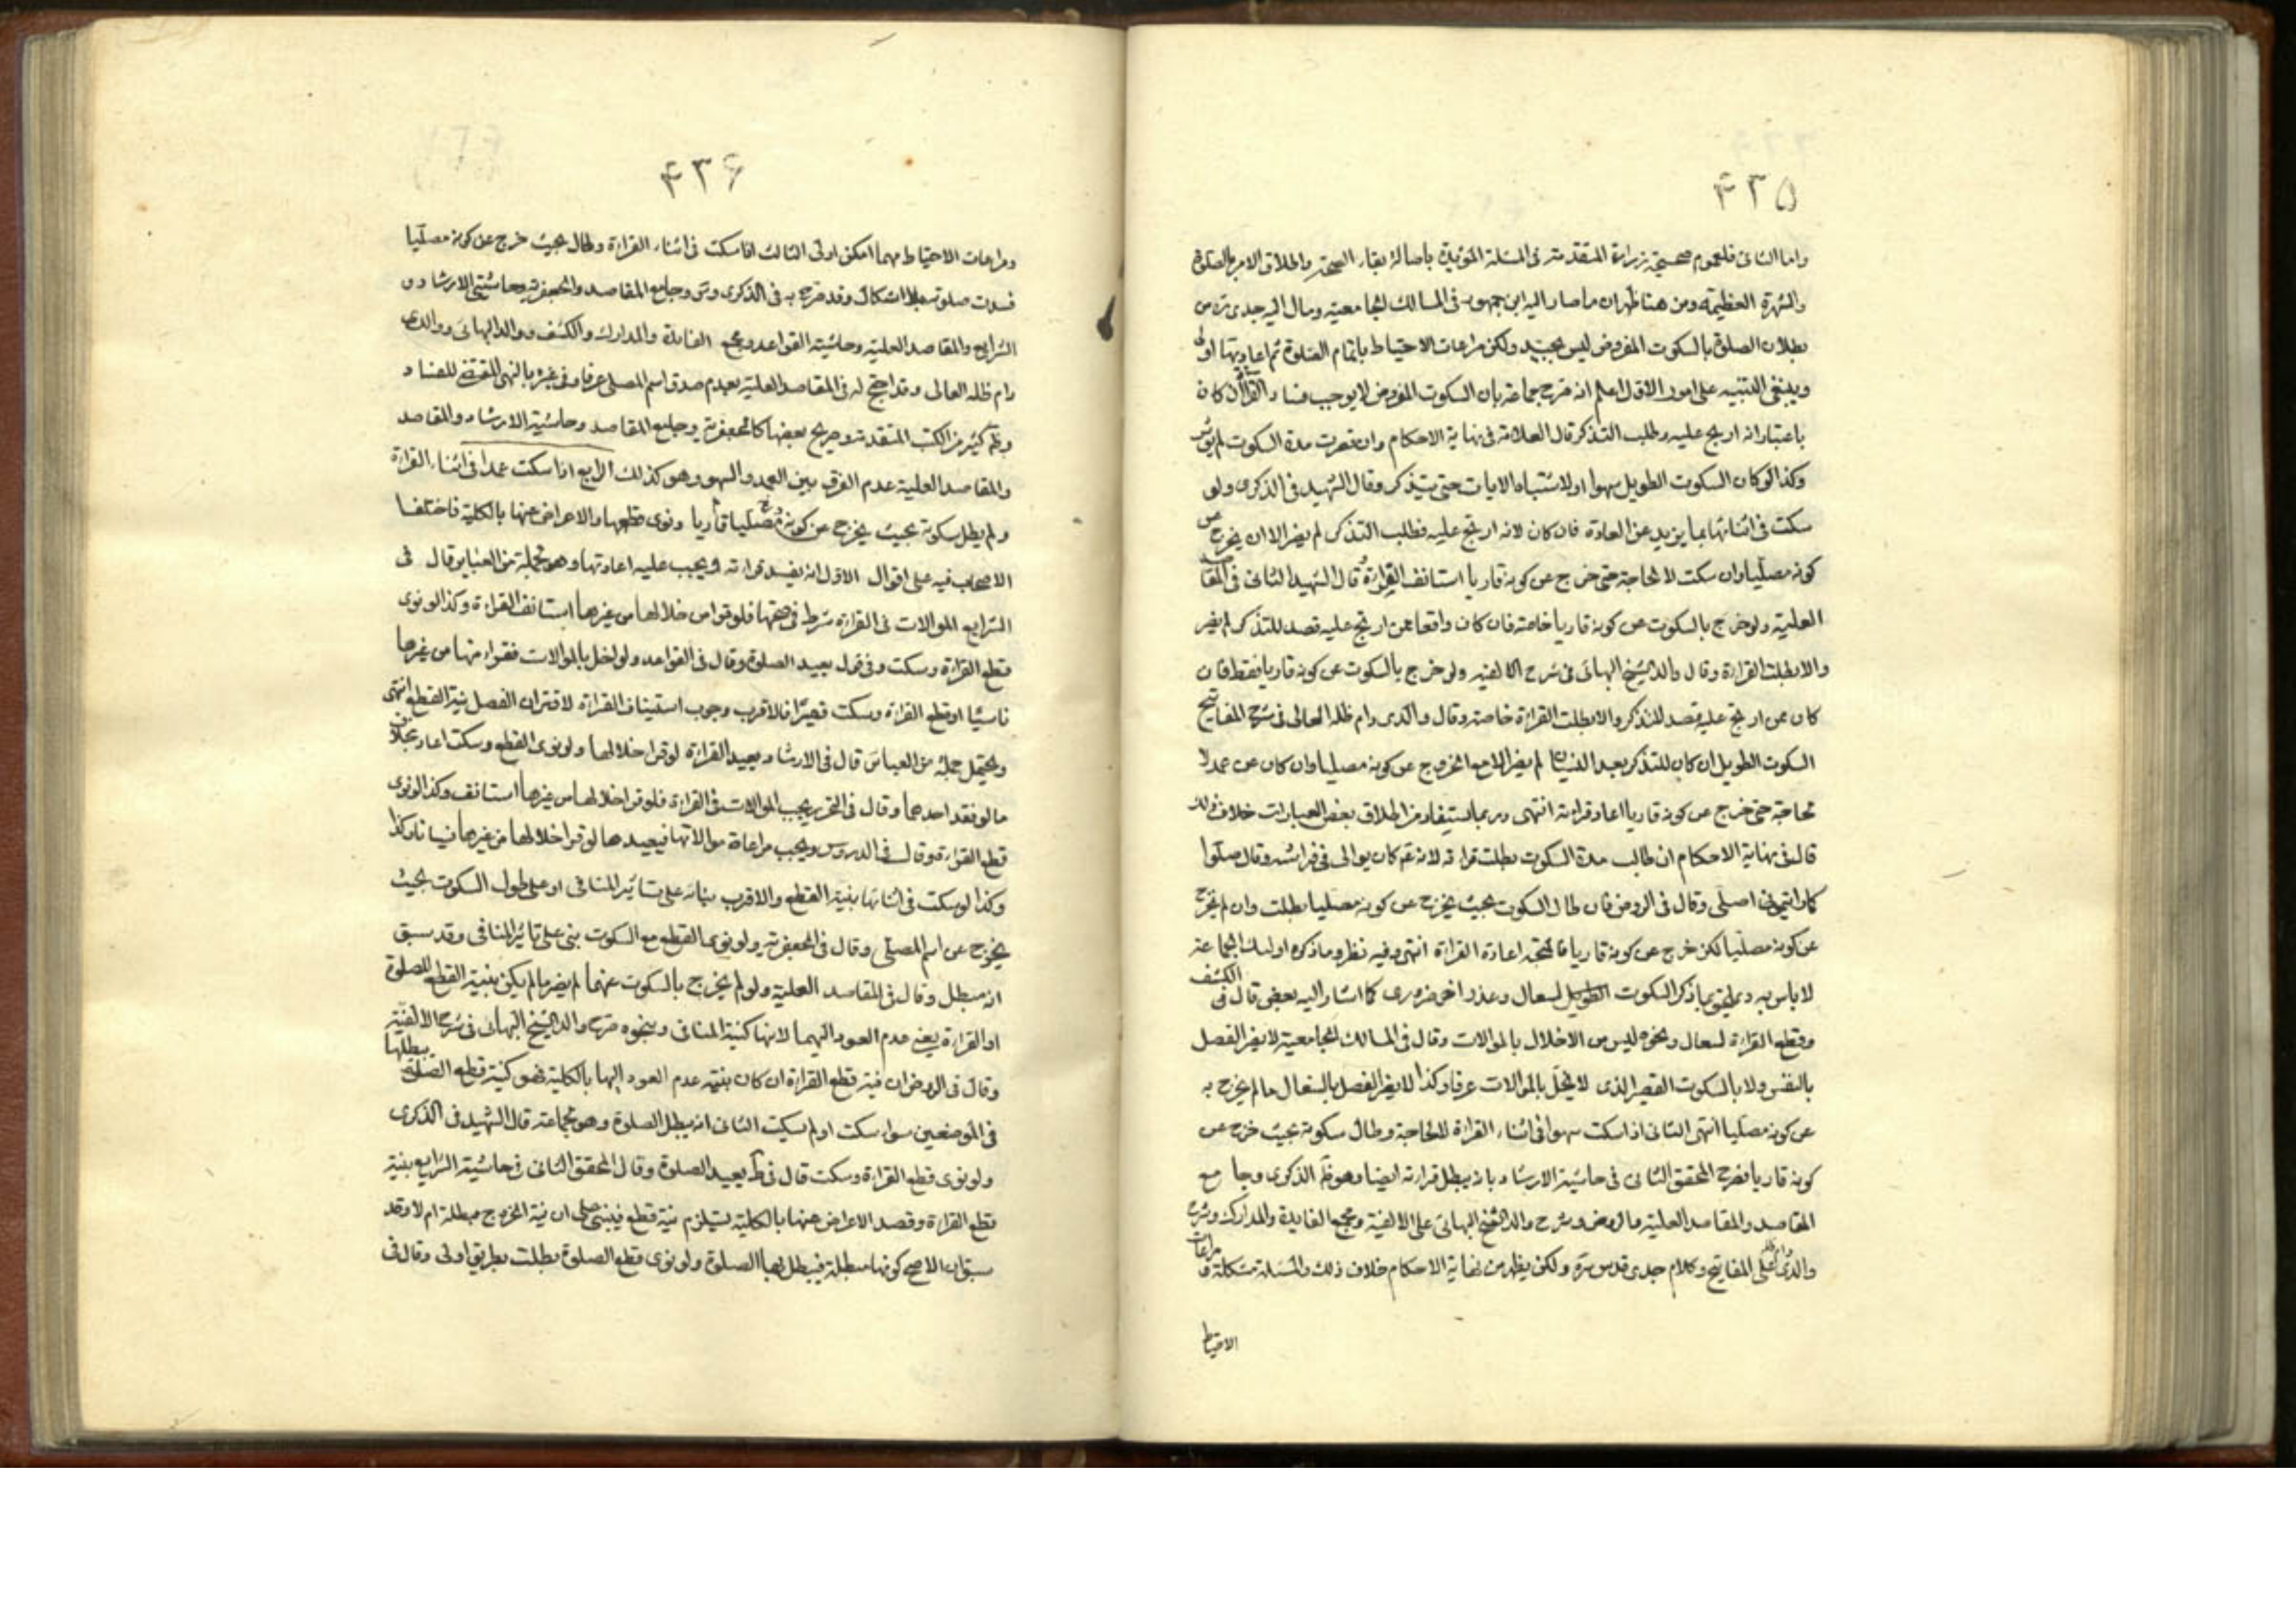 ۴۳۵
واما الثانى فلعموم صحيحة زرارة المتقدمة فى المسئلة المؤيدة باصالة بقاء الصحة واطلاق الامر بالصلوة
والشهرة العظيمة ومن هنا ظهر ان ما صار اليه ابن جمهور فى المسالك الجامعية ومال اليه جدى ره من
بطلان الصلوة بالسكوت المفروض ليس بجيد ولكن مراعات الاحتياط باتمام الصلوة ثم اعادتها اولى
وينبغى التنبيه على امور الاول اعلم انه صرح جماعة بان السكوت المفروض لا يوجب فساد القراءة ان كان
باعتبار انه ارتج عليه وطلب التذكر قال العلامة فى نهاية الاحكام وان قصرت مدة السكوت لم يؤثر
وكذا لو كان السكوت الطويل سهوا او لاشتباه الايات حتى يتذكر وقال الشهيد فى الذكرى ولو
سكت فى اثنائها بما يزيد عن العادة فان كان لانه ارتج عليه فطلب التذكر لم يضر الا ان يخرج عن
كونه مصليا وان سكت لا لحاجة حتى خرج عن كونه قاريا استانف القراءة وقال الشهيد الثانى فى المقاصد
العلية ولو خرج بالسكوت عن كونه قاريا خاصة فان كان واقعا عمن ارتج عليه قصد للتذكر لم يضر
والا بطلت القراءة وقال والد الشيخ البهائى فى شرح الالفية ولو خرج بالسكوت عن كونه قاريا فقط فان
كان ممن ارتج عليه بقصد التذكر والا بطلت القراءة خاصة وقال والدى دام ظله العالى فى شرح المفاتيح
السكوت الطويل ان كان للتذكر بعد النسيان لم يضر الا مع الخروج عن كونه مصليا وان كان عن عمد لا
لحاجة حتى خرج عن كونه قاريا اعاد قراءته انتهى وربما يستفاد من اطلاق بعض العبارات خلاف ذلك
قال فى نهاية الاحكام ان طالت مدة السكوت بطلت قراءته لانه عم كان يوالى فى قراءته وقال صلوا
كما رايتمونى اصلى وقال فى الروض فان طال السكوت بحيث يخرج عن كونه مصليا بطلت وان لم يخرج
عن كونه مصليا لكن خرج عن كونه قاريا فالمتجه اعادة القراءة انتهى وفيه نظر وما ذكره اولئك الجماعة
لا باس به ويلحق بما ذكر السكوت الطويل لسعال وعذر اخر ضرورى كما اشار اليه بعض قال فى الكشف
وقطع القراءة لسعال ونحوه ليس من الاخلال بالموالات وقال فى المسالك الجامعية لا يضر الفصل
بالنفس ولا بالسكوت القصير الذى لا يخل بالموالات عرفا وكذا لا يضر الفصل بالسعال ما لم يخرج به
عن كونه مصليا انتهى الثانى اذا سكت سهوا فى اثناء القراءة لا لحاجة وطال سكوته بحيث خرج عن
كونه قاريا فصرح المحقق الثانى فى حاشية الارشاد بانه يبطل قراءته ايضا وهو ظ الذكرى وجامع
المقاصد والمقاصد العلية والروض وشرح والد الشيخ البهائى على الالفية ومجمع الفايدة والمدارك وشرح
والدى دام ظله على المفاتيح وكلام جدى قدس سره ولكن يظهر من نهاية الاحكام خلاف ذلك والمسئلة مشكلة فمراعات
الاحتياط
۴۳۶
ومراعات الاحتياط مهما امكن اولى الثالث اذا سكت فى اثناء القراءة وطال بحيث خرج عن كونه مصليا
فسدت صلوته بلا اشكال وقد صرح به فى الذكرى وس وجامع المقاصد والجعفرية وحاشيتى الارشاد و
الشرايع والمقاصد العلية وحاشية القواعد ومجمع الفايدة والمدارك والكشف ووالد البهائى ووالدى
دام ظله العالى وقد احتج له فى المقاصد العلية بعدم صدق اسم المصلى عرفا وفى غيره بالنهى المقتضى للفساد
وظ كثير من الكتب المتقدمة وصريح بعضها كالجعفرية وجامع المقاصد وحاشية الارشاد والمقاصد
والمقاصد العلية عدم الفرق بين العمد والسهو وهو كذلك الرابع اذا سكت عمدا فى اثناء القراءة
ولم يطل سكوته بحيث يخرج عن كونه مصليا قاريا ونوى قطعها والاعراض عنها بالكلية فاختلف
الاصحاب فيه على اقوال الاول انه يفسد قراءته ويجب عليه اعادتها وهو لجملة من العبائر قال فى
الشرايع الموالات فى القراءة شرط فى صحتها فلو قرا من خلالها من غيرها استانف القراءة وكذا لو نوى
قطع القراءة وسكت وفى قول يعيد الصلوة وقال فى القواعد ولو اخل بالموالات فقراء منها من غيرها
ناسيا او قطع القراءة وسكت فالاقرب وجوب استيناف القراءة لاقتران الفصل نية القطع انتهى
ويحتمل جملة من العبائر قال فى الارشاد يعيد القراءة لو قرا خلالها ولو نوى القطع وسكت اعاد بخلاف
ما لو فقد احدهما وقال فى التحرير يجب الموالات فى القراءة فلو قرا خلالها من غيرها استانف وكذا لو نوى
قطع القراءة وقال فى الدروس ويجب مراعاة موالاتها فيعيدها لو قرا خلالها من غيرها نسيانا وكذا
وكذا لو سكت فى اثنائها بنية القطع والاقرب بنائه على تاثير المنافى او على طول السكوت بحيث
يخرج عن اسم المصلى وقال فى الجعفرية ولو نوى القطع مع السكوت بنى على تاثير المنافى وقد سبق
انه مبطل وقال فى المقاصد العلية ولو لم يخرج بالسكوت عنهما لم يضر ما لم يكن بنية القطع للصلوة
او القراءة يعنى عدم العود اليهما لانها كنية المنافى وبنحوه صرح والد الشيخ البهائى فى شرح الالفية
وقال فى الروض ان نية قطع القراءة ان كان بنية عدم العود اليها بالكلية فهو كنية قطع الصلوة يبطلها
فى الموضعين سواء سكت او لم يسكت الثانى انه يبطل الصلوة وهو لجماعة قال الشهيد فى الذكرى
ولو نوى قطع القراءة وسكت قال فى ط يعيد الصلوة وقال المحقق الثانى فى حاشية الشرايع بنية
قطع القراءة وقصد الاعراض عنها بالكلية يستلزم نية قطع فيبنى على ان نية الخروج مبطلة ام لا وقد
سبق ان الاصح كونها مبطلة فيبطل بها الصلوة ولو نوى قطع الصلوة بطلت بطريق اولى وقال فى